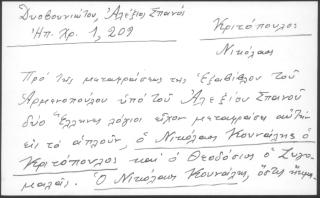 Δυοβουνιώτου, Ἀλέξιος Σπανός
Ἠπ. Χρ. 1, 209
Κριτόπουλος
Νικόλαος
Πρὸ τῆς μεταφράσεως τῆς Ἑξαβίβλου τοῦ
Ἁρμενοπούλου ὑπὸ τοῦ Ἀλεξίου Σπανοῦ
δύο Ἕλληνες λόγιοι εἶχον μεταφράσει αὐτὴν
εἰς τὸ ἁπλοῦν, ὁ Νικόλαος Κουνάλης ὁ
Κριτόπουλος καὶ ὁ Θεοδόσιος ὁ Ζυγο-
μαλᾶς. Ὁ Νικόλαος Κουνάλης, ὅστις